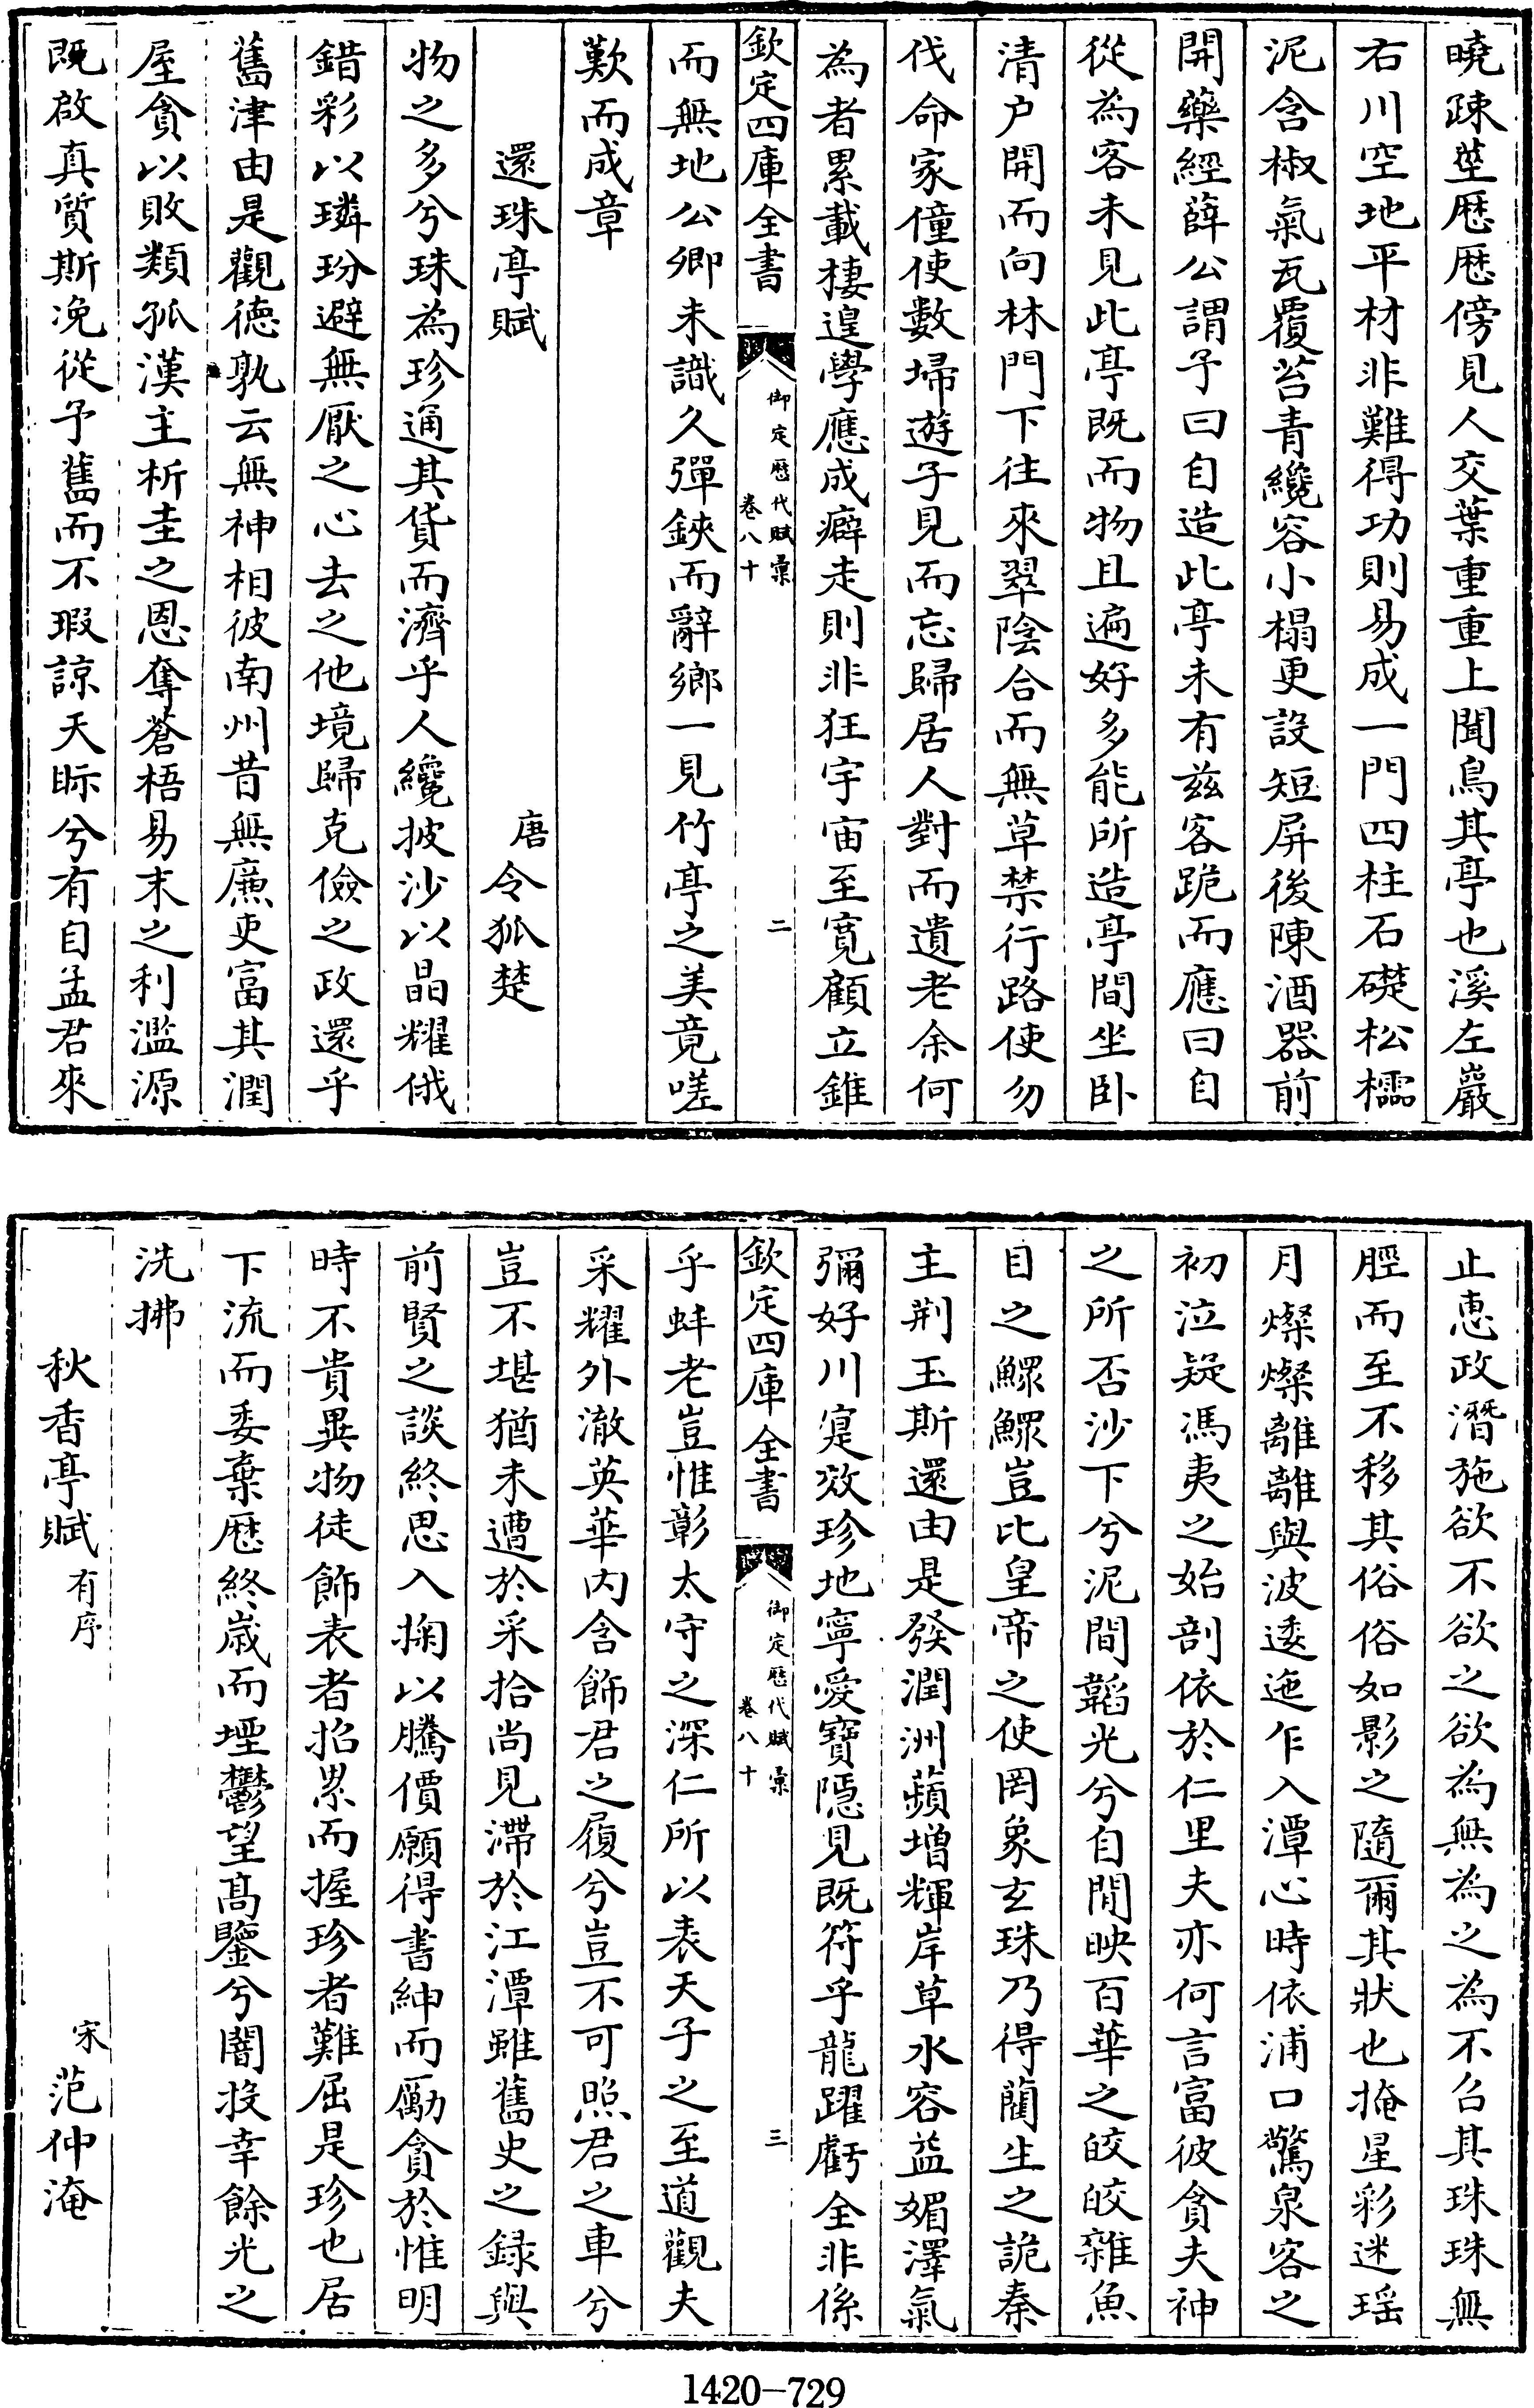 曉疎莖厯厯傍見人交葉重重上聞鳥其亭也溪左巖
右川空地平材非難得功則易成一門四柱石礎松櫺
泥含椒氣瓦覆苔青纔容小榻更設短屏後陳酒器前
開藥經薛公謂予曰自造此亭未有兹客跪而應曰自
從為客未見此亭既而物且遍好多能所造亭間坐卧
清户開而向林門下往來翠陰合而無草禁行路使勿
伐命家僮使數埽遊子見而忘歸居人對而遺老余何
為者累載棲遑學應成癖走則非狂宇宙至寛顧立錐
欽定四庫全書
御定厯代賦彙
卷八十
二
而無地公卿未識久彈鋏而辭鄉一見竹亭之美竟嗟
歎而成章
還珠亭賦
唐令狐楚
物之多兮珠為珍通其貨而濟乎人纔披沙以晶耀俄
錯彩以璘玢避無厭之心去之他境歸克儉之政還乎
舊津由是觀德孰云無神相彼南州昔無廉吏富其潤
屋貪以敗類孤漢主析圭之恩奪蒼梧易末之利濫源
既啟真質斯浼從予舊而不瑕諒天眎兮有自孟君來
止惠政潛施欲不欲之欲為無為之為不召其珠珠無
脛而至不移其俗俗如影之隨爾其狀也掩星彩迷瑶
月燦燦離離與波逶迤乍入潭心時依浦口驚泉客之
初泣疑馮夷之始剖依於仁里夫亦何言富彼貪夫神
之所否沙下兮泥間韜光兮自閒映百華之皎皎雜魚
目之鰥鰥豈比皇帝之使罔象玄珠乃得藺生之詭秦
主荆玉斯還由是發潤洲蘋増輝岸草水容益媚澤氣
彌好川寔效珍地寧愛寶隠見既符乎龍躍虧全非係
欽定四庫全書
御定厯代賦彙
卷八十
三
乎蚌老豈惟彰太守之深仁所以表天子之至道觀夫
采耀外澈英華内含飾君之履兮豈不可照君之車兮
豈不堪猶未遭於采拾尚見滯於江潭雖舊史之録與
前賢之談終思入掬以騰價願得書紳而勵貪於惟明
時不貴異物徒飾表者招累而握珍者難屈是珍也居
下流而委棄厯終嵗而堙鬱望髙鑒兮闇投幸餘光之
洗拂
秋香亭賦有序
宋范仲淹
1420-729